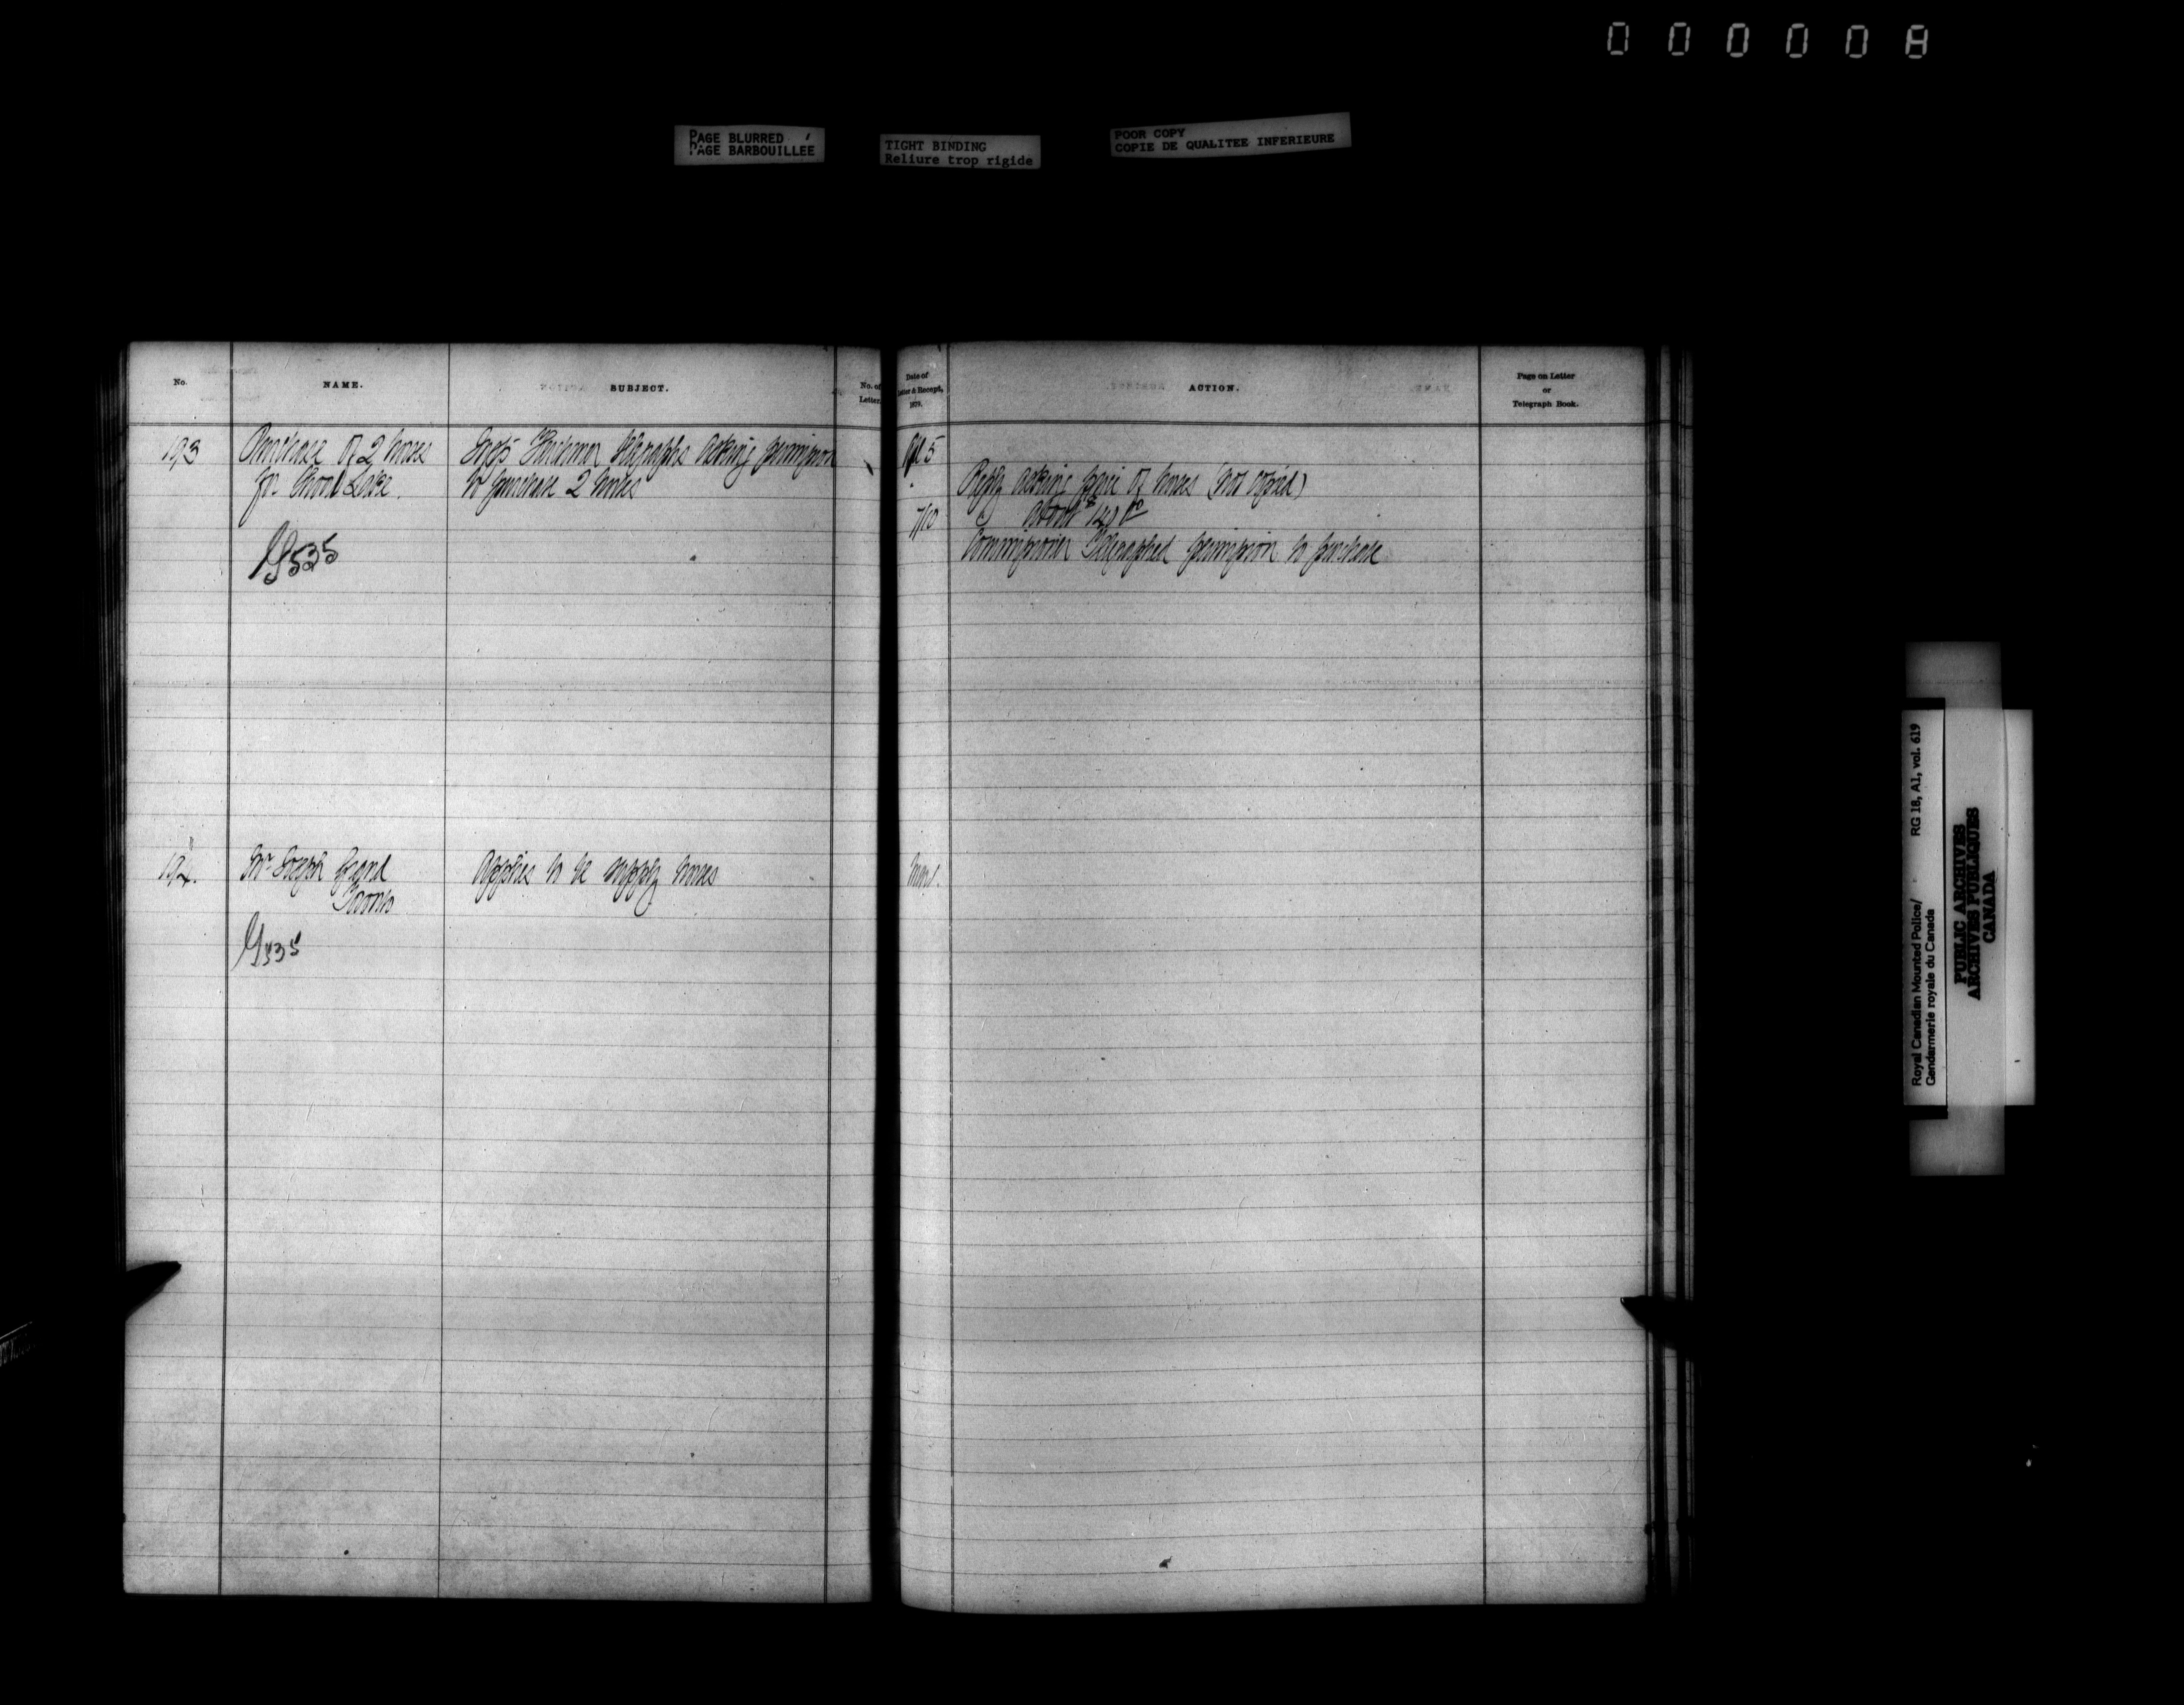 00000A
PAGE BLURRED
PAGE BARBOUILLÉE
TIGHT BINDING
Reliure trop rigide
POOR COPY
COPIE DE QUALITEE INFERIEURE
No.
NAME.
SUBJECT.
No. of
Letter.
Date of
Letter & Receipt,
1879.
ACTION.
Page on Letter
or
Telegraph Book.
193
Purchase of 2 horses
for Shoal Lake.
G535
Telegraphs asking permission
to purchase 2 horses
Apl 5
Reply asking price of horses (not copied)
7/10
about $140 00
Commissioner Telegraphed permission to purchase
194.
Mr Joseph Grand
Toronto
G535
Applies to be supply horses
RG 18, A1, vol. 619
Royal Canadian Mounted Police/
Gendarmerie royale du Canada
PUBLIC ARCHIVES
ARCHIVES PUBLIQUES
CANADA